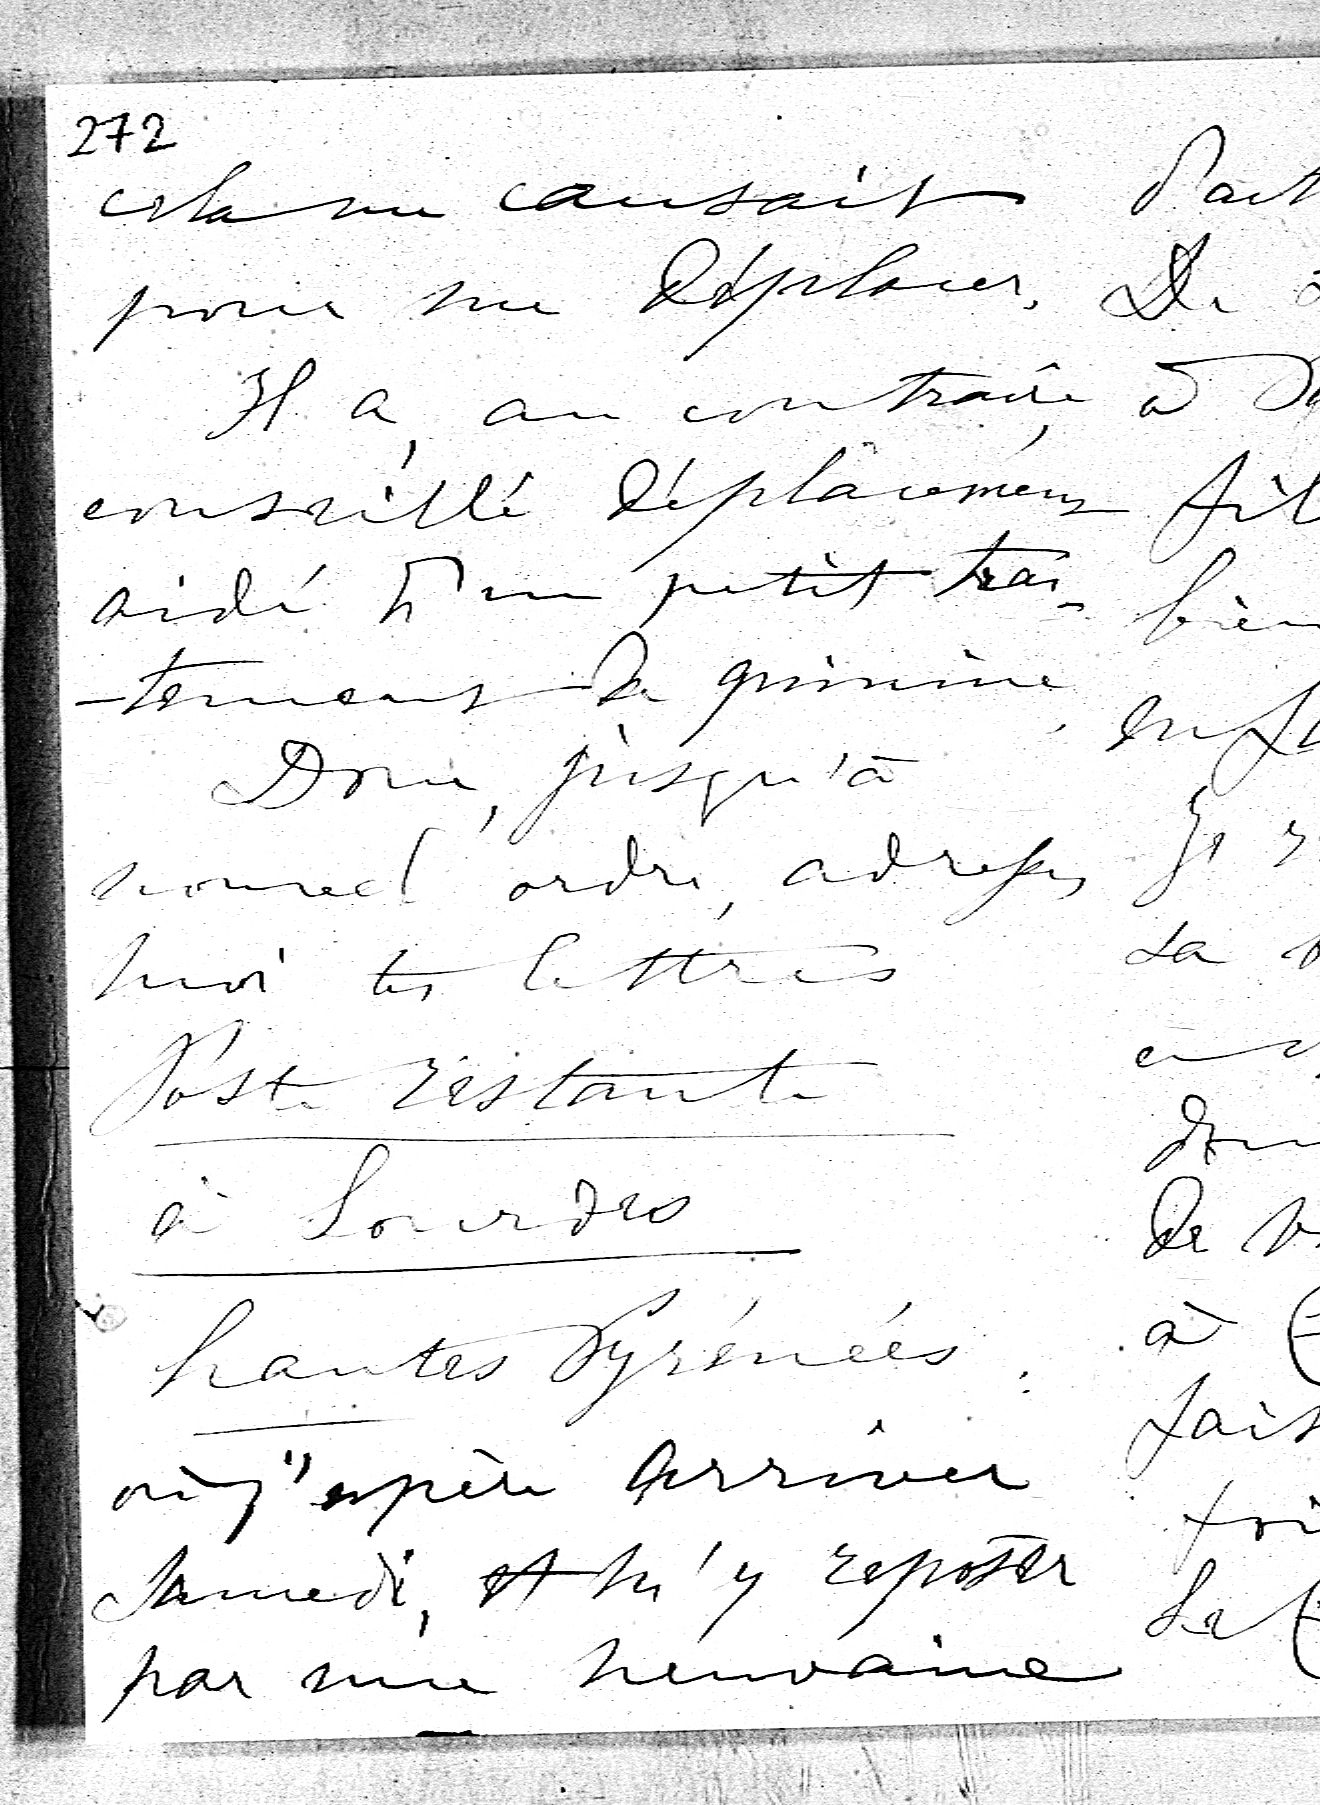 272
cela me causait
pour me déplacer.
Il a, au contraire,
conseillé déplacement
aidé d'un petit trai-
-tement de quinine.
Donc, jusqu'à
nouvel ordre, adresses
moi tes lettres
Poste restante
à Lourdes
hautes Pyrénées.
où j'espère arriver
Samedi, et m'y reposer
par une neuvaine
De
à
fil
bien
Je
sa
de
à
fais